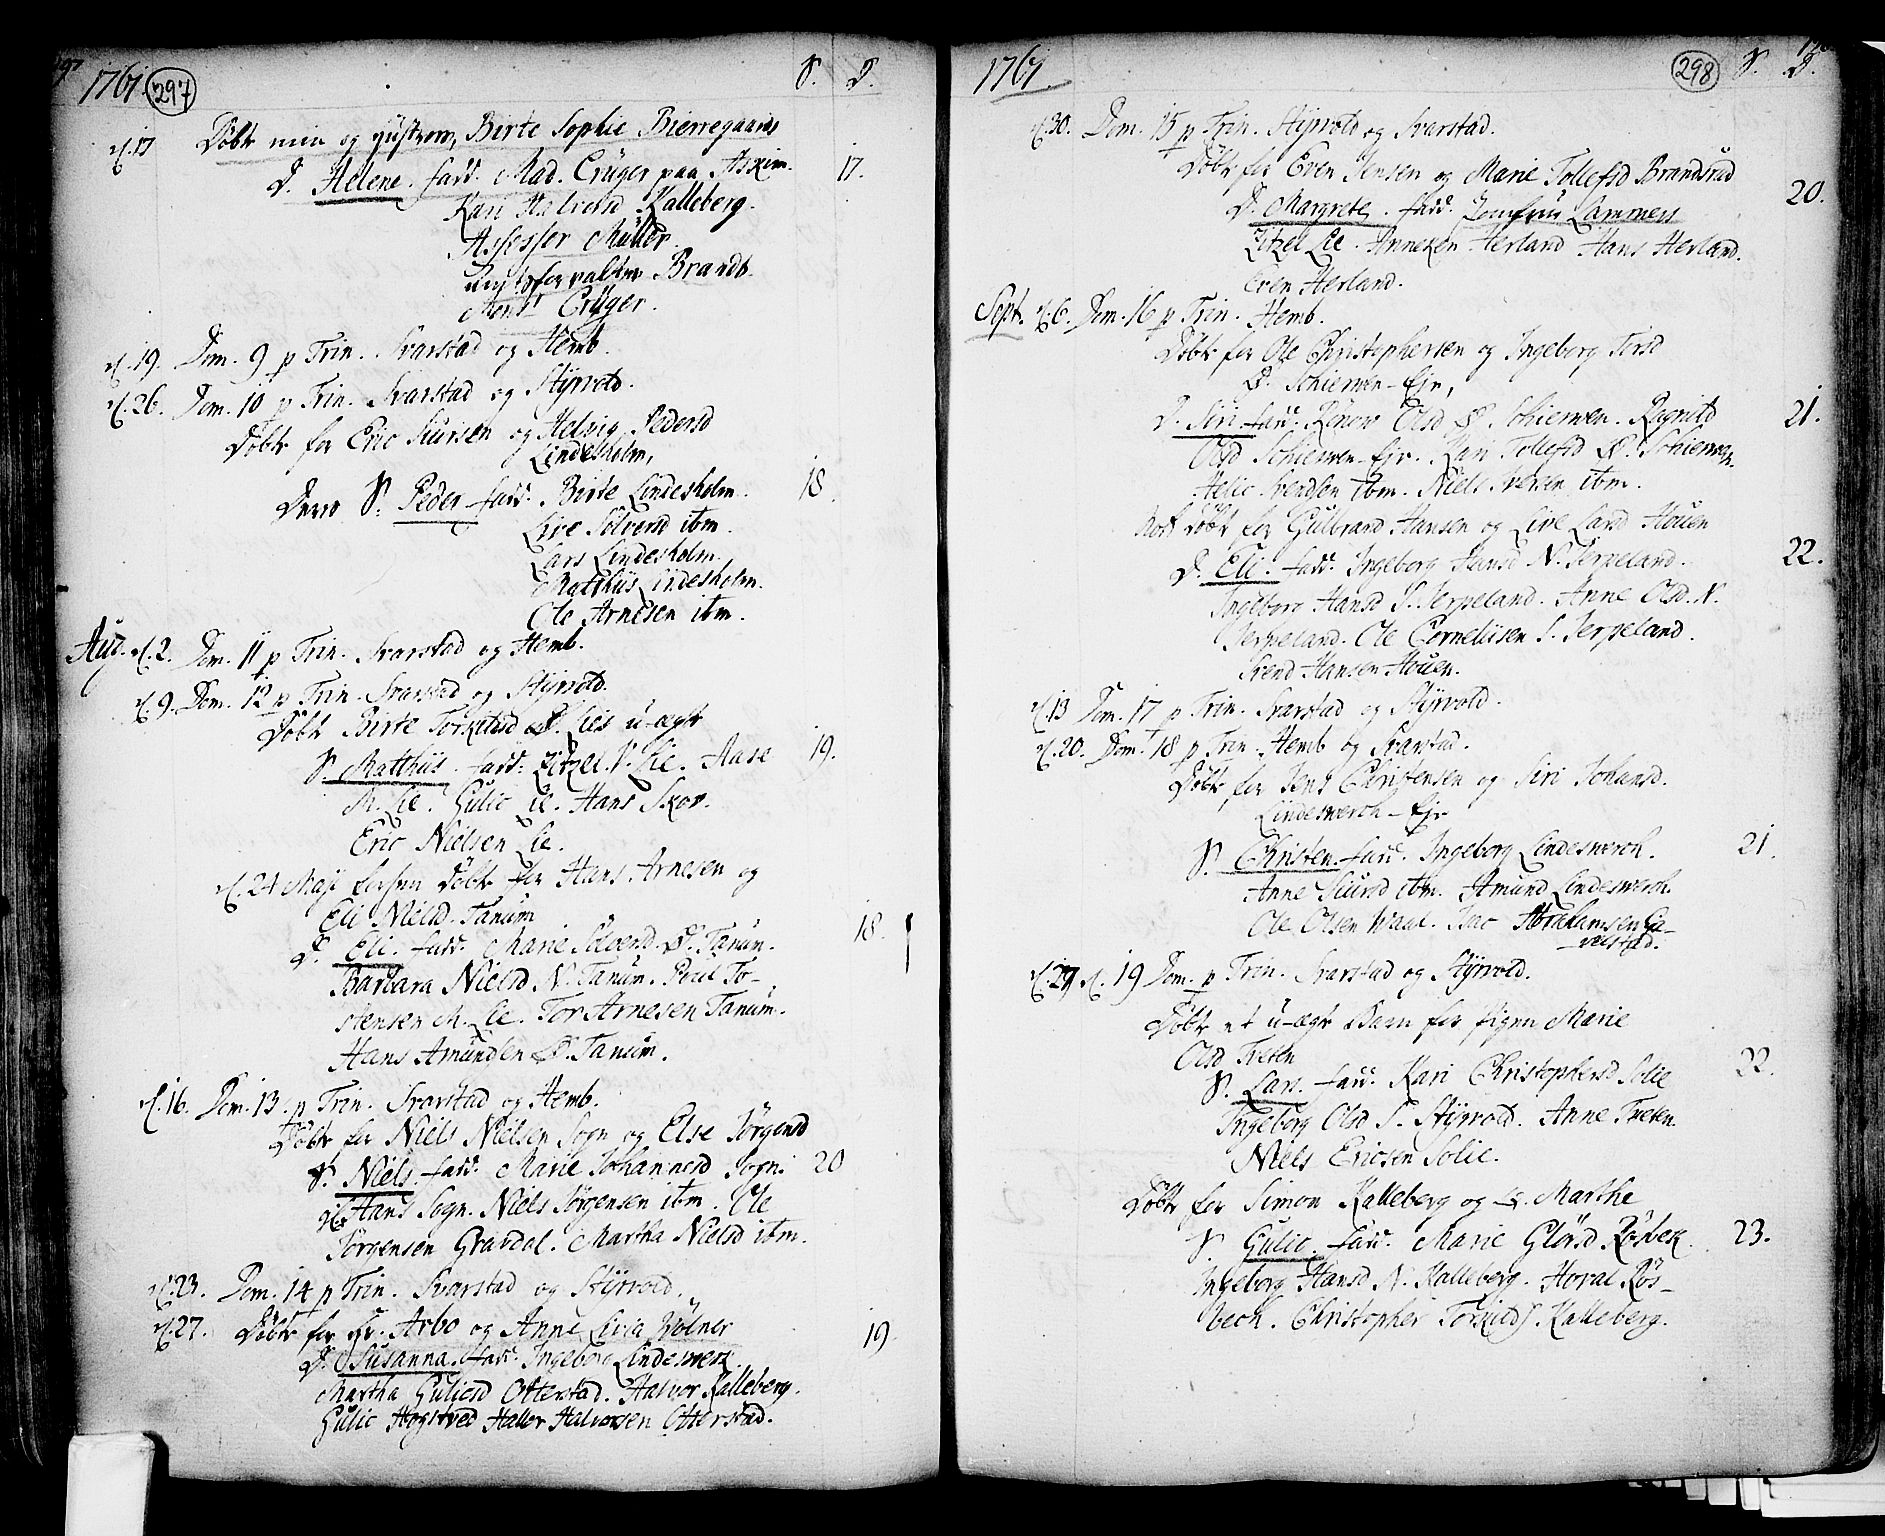 1767. 297 S. D.
d. 17 Döbt min og Hustroes, Birte Sophie Bierregaards
D. Helene. fadd. Mad. Crüger paa Askim. 17.
Kari Halvorsd Kalleberg.
Assessor Müller.
Brandt.
Mons. Crüger.
d. 19. Dom. 9 p Trin. Svarstad og Hemb.
d. 26. Dom. 10 p Trin. Svarstad og Styrvold.
Döbt for Eric Siursen og Helvig Pedersd
Lindesholm,
Deres S. Peder fadd. Birte Lindesholm. 18.
Live Sölversd ibm.
Lars Lindesholm.
Matthiis Lindesholm.
Ole Arnesen ibm.
Aug. d. 2. Dom. 11 p Trin. Svarstad og Hemb.
d. 9. Dom. 12 p Trin. Svarstad og Styrvold.
Döbt Birte Torkildsd Ø. Lies u-ægte
S. Matthiis. fadd: Zitzel N. Lie. Aase 19.
M. Lie. Gulic Lie. Hans Skor.
Eric Nielsen Lie.
d. 24 Maji Döbt for Hans Arnesen og
Eli Nielsd. Tanum
D. Eli. fadd. Marie Sölversd Ø. Tanum. 18.
Barbara Nielsd N. Tanum. Poul To-
stensen M. Lie. Tor Arnesen Tanum.
Hans Amundsen Ø. Tanum.
d. 16. Dom. 13. p Trin. Svarstad og Hemb.
Döbt for Niels Nielsen Sogn og Else Jörgensd
S. Niels. fadd. Marie Johannesd Sogn. 20
Hans Sogn. Niels Jörgensen ibm. Ole
Jörgensen Gravdal. Martha Nielsd ibm.
d. 23. Dom. 14 p Trin. Svarstad og Styrvold.
d. 27. Döbt for Hr. Arbo og Anne Livia Wölner
D. Susanna. fadd. Ingeborg Lindesverk. 19
Martha Guliesd Otterstad. Halvor Kalleberg.
Gulic Hogstved Halvor Halvorsen Otterstad.
1767. 298 S. D.
d. 30. Dom. 15 p Trin. Styrvold og Svarstad.
Döbt for Even Jensen og Marie Tollefsd Brandsrud
D. Margrete. fadd. Jomfrue Lammers 20.
Zitzel Lie. Anneken Herland Hans Herland.
Even Herland.
Sept. d. 6. Dom. 16 p Trin. Hemb.
Döbt for Ole Christophersen og Ingeborg Torsd
Ø. Schierven-Eje,
D. Siri fadd: Rønow Olsd Ø. Schierven. Ragnild 21.
Olsd Schierven-Eje. Kari Tollefsd Ø. Schierven
Helic Svendsen ibm. Niels Iversen ibm.
Döbt for Gulbrand Hansen og Live Larsd Houen
D. Eli. fadd. Ingeborg Hansd N. Jerpeland. 22.
Ingeborg Hansd S. Jerpeland. Anne Olsd. N.
Jerpeland. Ole Corneliisen S. Jerpeland.
Svend Hansen Houen.
d. 13 Dom. 17 p Trin. Svarstad og Styrvold.
d. 20. Dom. 18 p Trin. Hemb og Svarstad.
Döbt for Jens Christensen og Siri Johansd.
Lindesverch-Eje
S. Christen. fadd. Ingeborg Lindesverch. 21.
Anne Siursd ibm. Amund Lindesverch.
Ole Olsen Waal. Isac Abrahamsen Ga-
velstad.
d. 27 d. 19 Dom. p Trin. Svarstad og Styrvold.
Döbt et u-ægte Barn for Pigen Marie
Olsd Tveten
S. Lars. fadd. Kari Christophersd Solie 22.
Ingeborg Olsd S. Styrvold. Anne Tveten.
Niels Ericsen Solie.
Döbt for Simon Kalleberg og Marthe
S. Gulic. fadd. Marie Glörsd Rösbek 23.
Ingeborg Hansd N. Kalleberg. Horal Rös-
bech. Christopher Torkilds. Kalleberg.